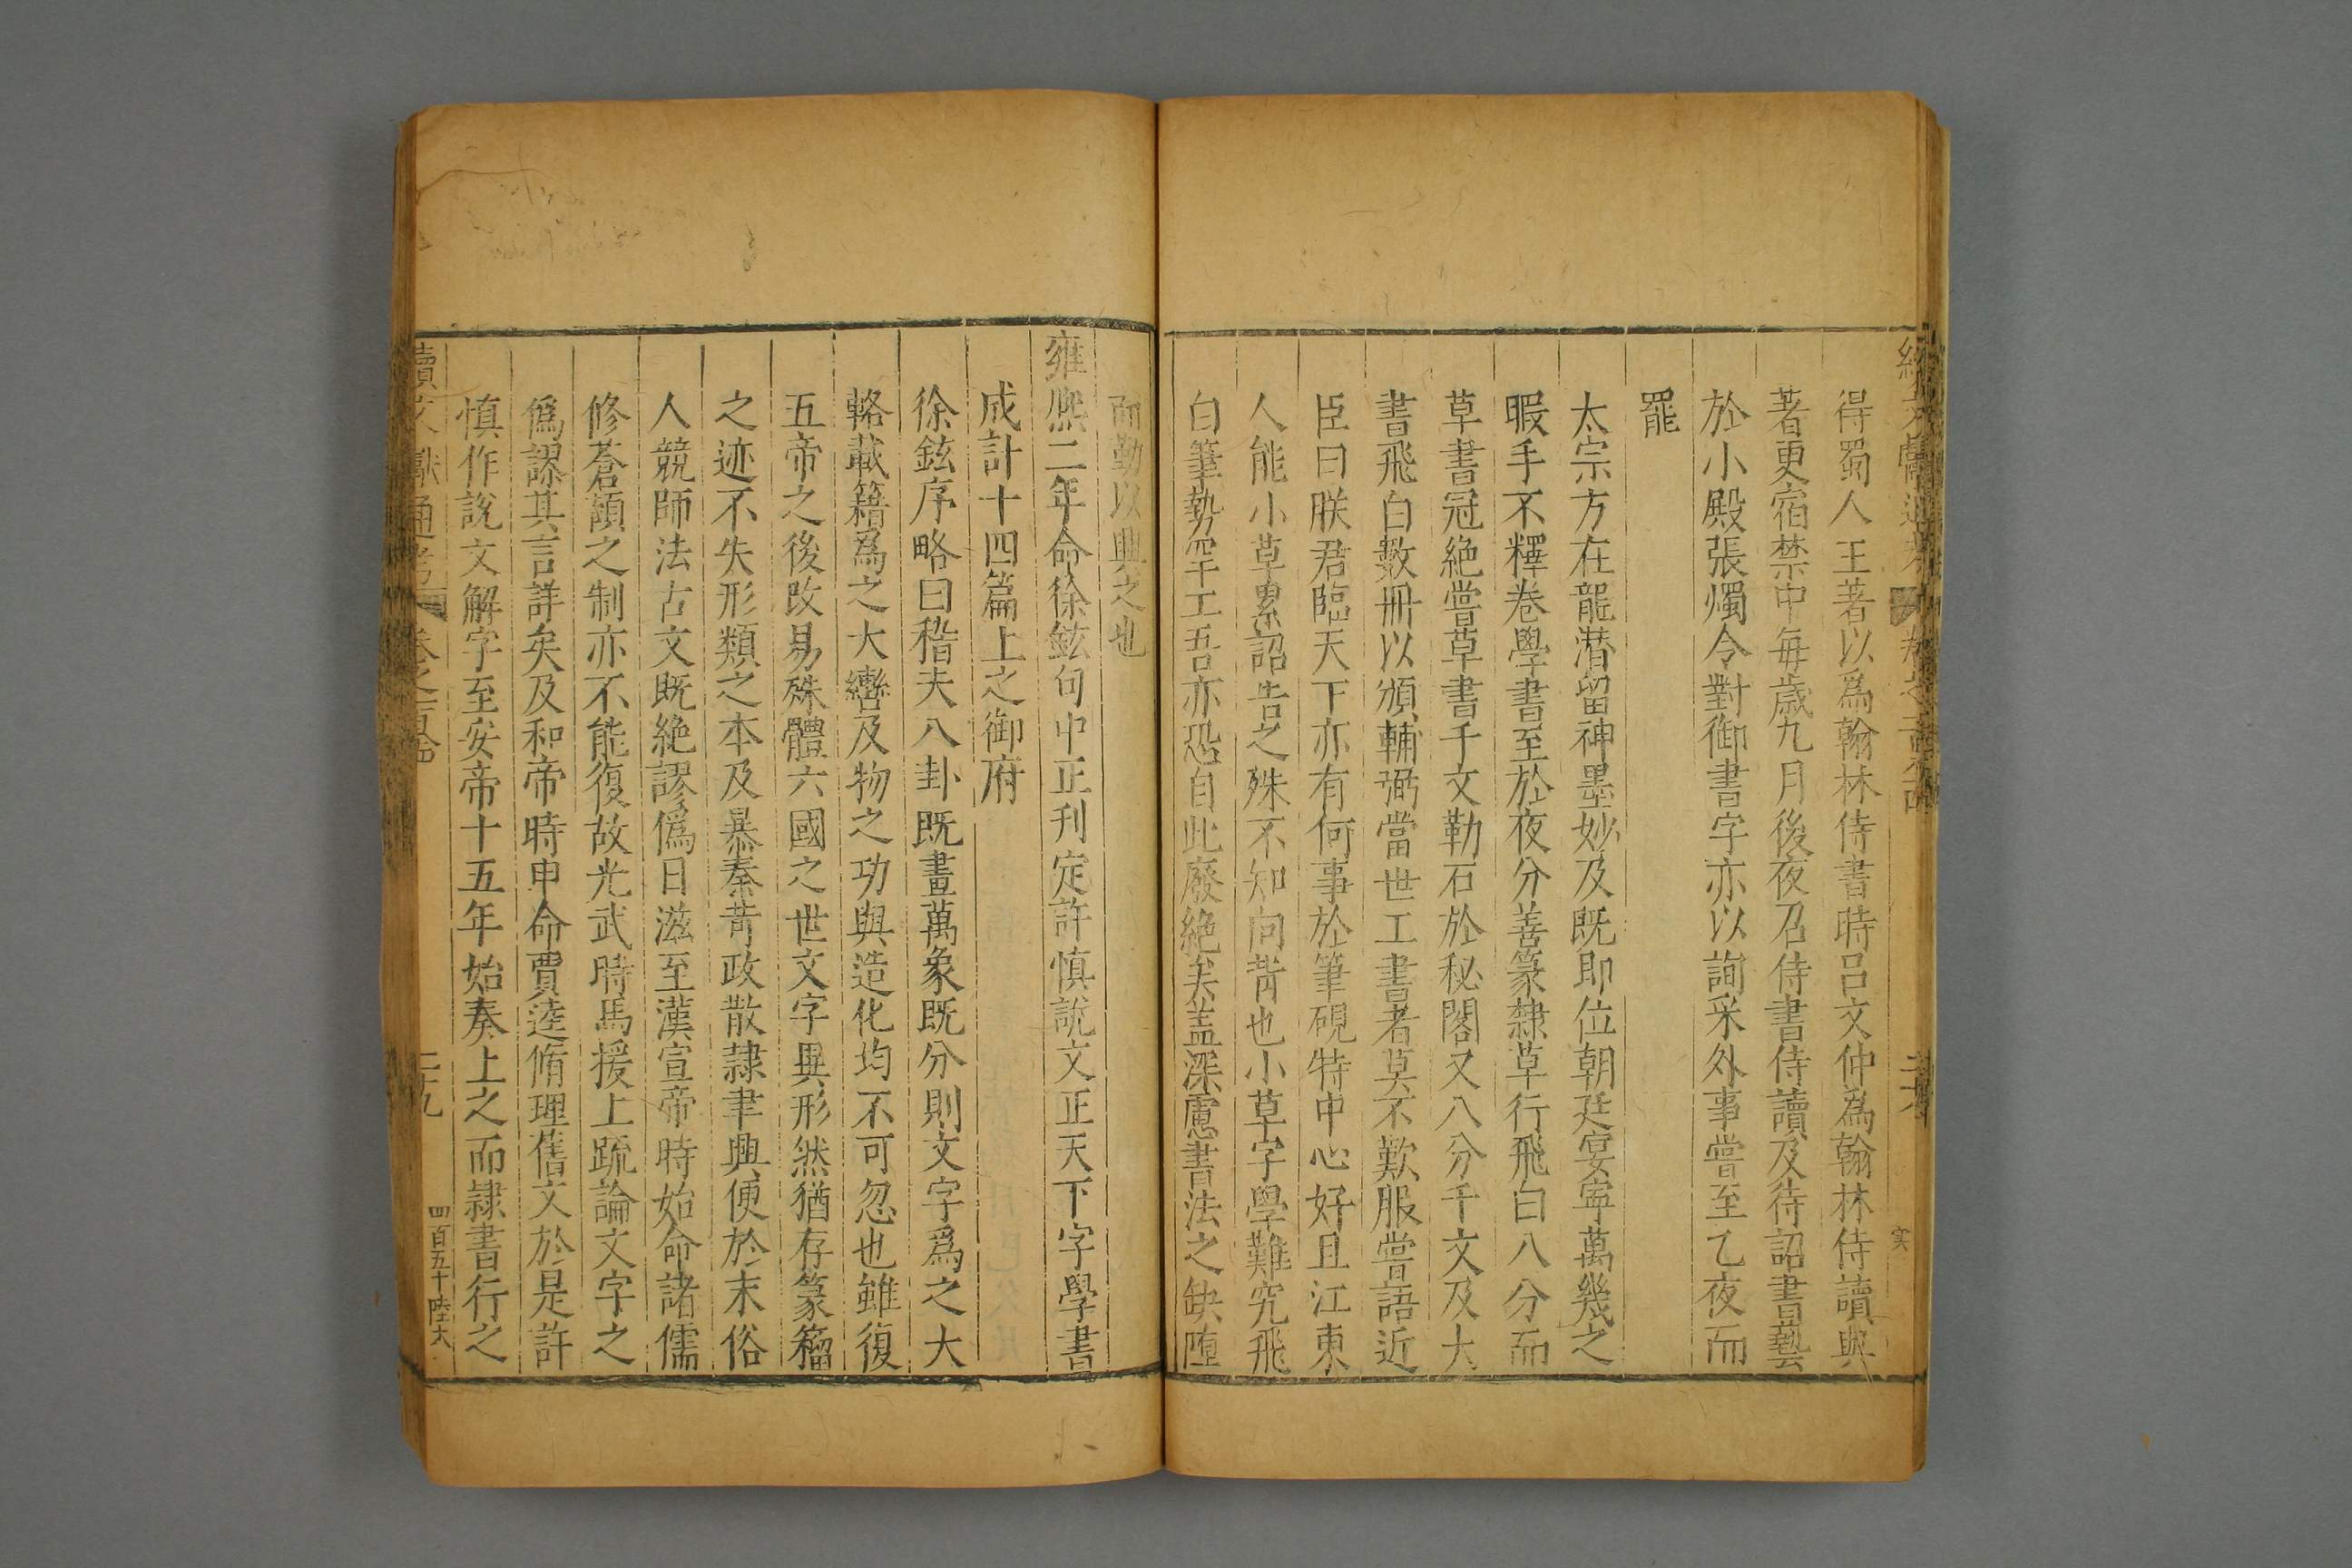 得蜀人王著以爲翰林侍書時呂文仲爲翰林侍讀與
著更宿禁中每歲九月後夜召侍書侍讀及待詔書藝
於小殿張燭令對御書字亦以詢采外事嘗至乙夜而
罷
太宗方在龍潛留神墨妙及既即位朝廷宴寧萬幾之
暇手不釋卷學書至於夜分善篆隸草行飛白八分而
草書冠絶嘗草書千文勒石於秘閣又八分千文及大
書飛白數冊以頒輔弼當世工書者莫不歎服嘗語近
臣曰朕君臨天下亦有何事於筆硯特中心好且江東
人能小草累詔告之殊不知向背也小草字學難究飛
白筆勢罕工吾亦恐自此廢絶矣盖深慮書法之缺堕
而勤以興之也
雍熈二年命徐鉉句中正刊定許慎說文正天下字學書
成計十四篇上之御府
徐鉉序略曰稽夫八卦既畫萬象既分則文字爲之大
輅載籍爲之大轡及物之功與造化均不可忽也雖復
五帝之後改易殊體六國之世文字異形然猶存篆籀
之迹不失形類之本及暴秦苛政散隷聿興便於末俗
人競師法古文既絶謬僞日滋至漢宣帝時始命諸儒
修蒼頡之制亦不能復故光武時馬援上疏論文字之
僞謬其言詳矣及和帝時申命賈逵脩理舊文於是許
慎作說文解字至安帝十五年始奏上之而隷書行之
續文獻通考 卷之一百 二十九 四百五十陸大